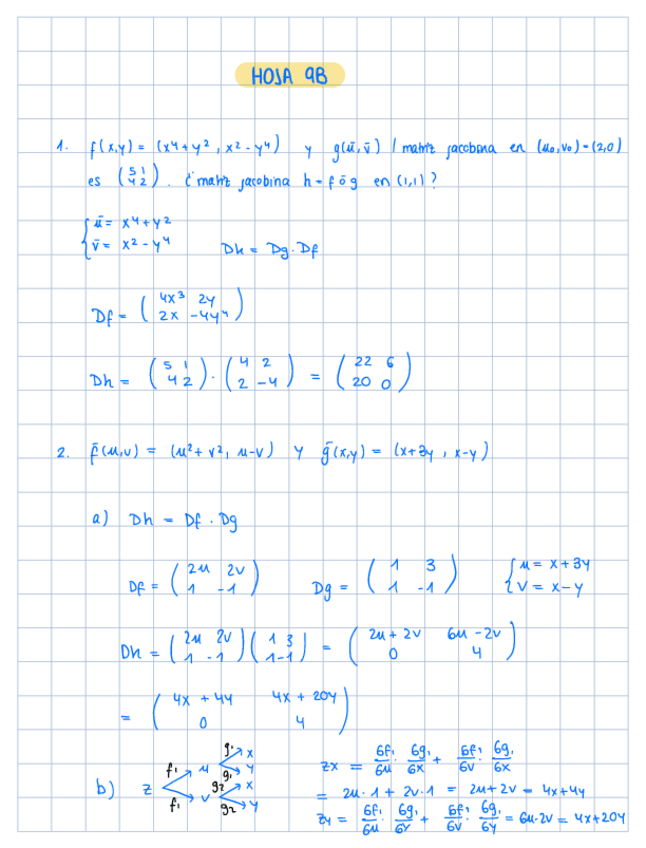 HOJA 9B
1. f(x,y) = (x⁴+y², x²-y⁴) y g(ū,v̄) / matriz jacobina en (u₀,v₀)=(2,0)
es (5 1 / 4 2). ¿matriz jacobina h = f ō g en (1,1)?
{ū = x⁴+y²
v̄ = x²-y⁴ Dh = Dg·Df
Df = (4x³ 2y / 2x -4y⁴)
Dh = (5 1 / 4 2)·(4 2 / 2 -4) = (22 6 / 20 0)
2. f̄(u,v) = (u²+v², u-v) y ḡ(x,y) = (x+3y, x-y)
a) Dh = Df · Dg
Df = (2u 2v / 1 -1) Dg = (1 3 / 1 -1) {u = x+3y / v = x-y
Dh = (2u 2v / 1 -1)(1 3 / 1 -1) = (2u+2v 6u-2v / 0 4)
= (4x+4y 4x+20y / 0 4)
b) z f₁ u g₁ x g₁ y f₁ v g₂ x g₂ y
zx = 6f₁/6u · 6g₁/6x + 6f₁/6v · 6g₁/6x
= 2u·1 + 2v·1 = 2u+2v = 4x+4y
zy = 6f₁/6u · 6g₁/6y + 6f₁/6v · 6g₁/6y = 6u-2v = 4x+20y